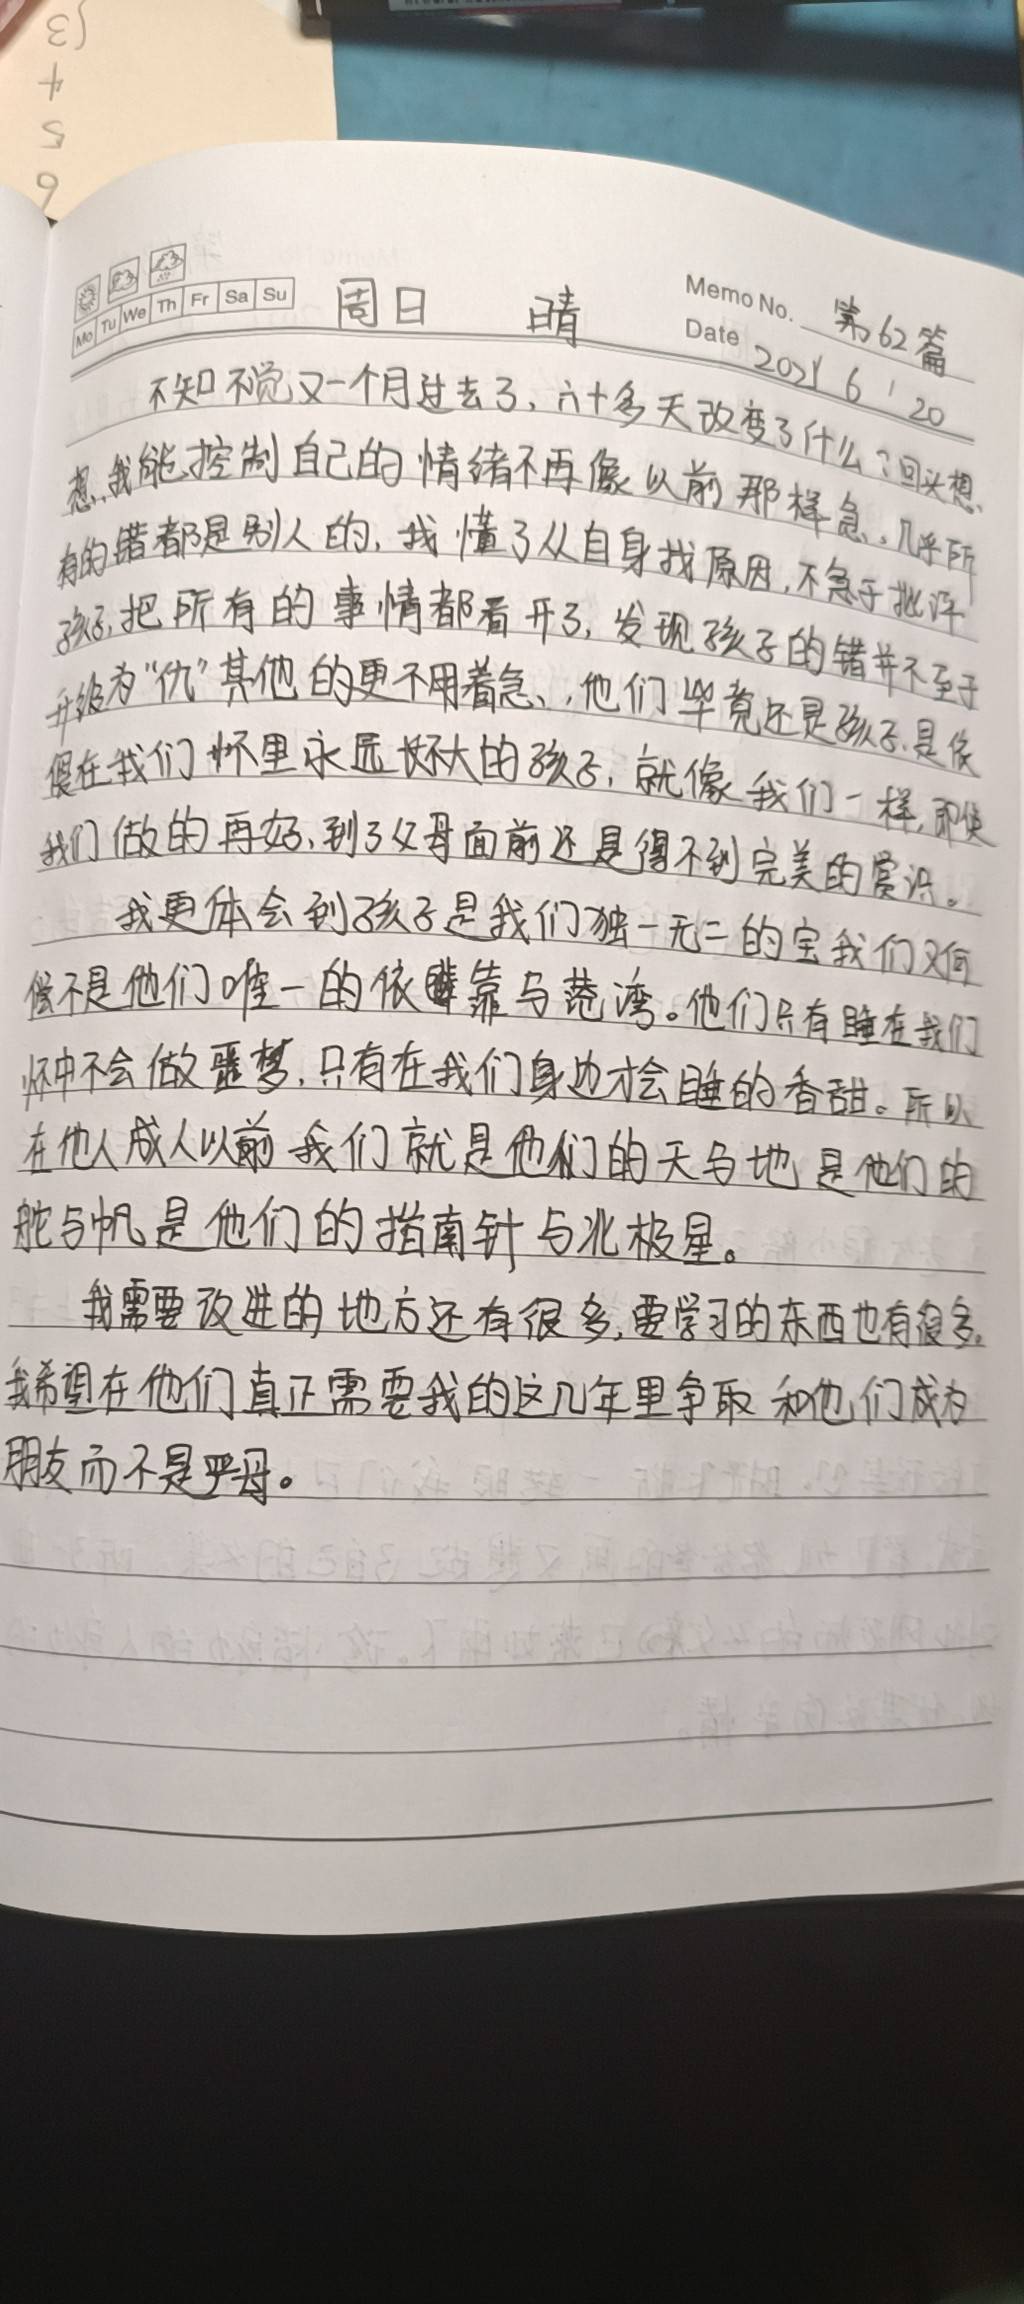 3)
4
5
6
Mo Tu We Th Fr Sa Su 周日 晴 Memo No. 第62篇
Date 2021 6 20
不知不觉又一个月过去了、六十多天改变了什么?回头想
想、我能控制自己的情绪不再像以前那样急、几乎所
有的错都是别人的,我懂了从自身找原因,不急于批评
孩子,把所有的事情都看开了,发现孩子的错并不至于
升级为“仇”其他的更不用着急、,他们毕竟还是孩子,是依
偎在我们怀里永远长不大的孩子,就像我们一样,即使
我们做的再好、到了父母面前还是得不到完美的赏识。
我更体会到孩子是我们独一无二的宝我们又何
偿不是他们唯一的依靠与港湾。他们只有睡在我们
怀中不会做噩梦,只有在我们身边才会睡的香甜。所以
在他人成人以前我们就是他们的天与地是他们的
舵与帆是他们的指南针与北极星。
我需要改进的地方还有很多,要学习的东西也有很多,
我希望在他们真正需要我的这几年里争取和他们成为
朋友而不是严母。